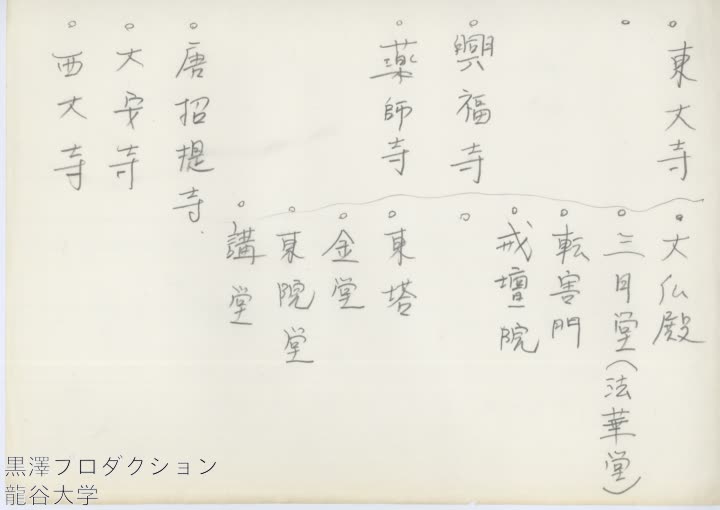 東大寺
大仏殿
三月堂(法華堂)
転害門
戒壇院
興福寺
薬師寺
東塔
金堂
東院堂
講堂
唐招提寺
大安寺
西大寺
黒澤フロダクション
龍谷大学